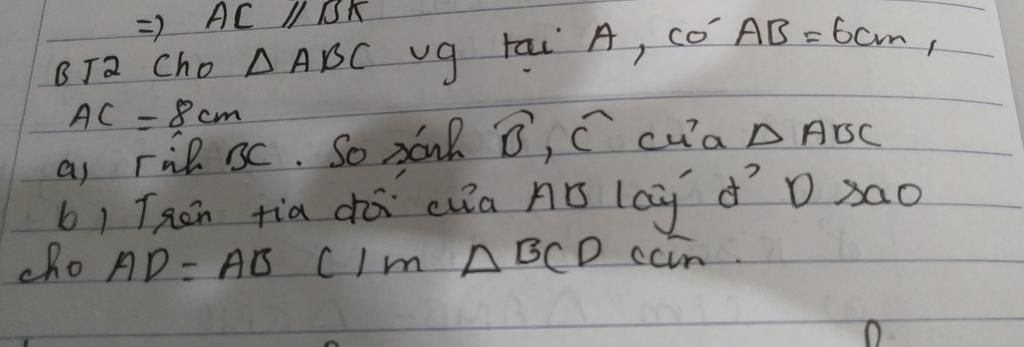 =) AC // BK
BT2 Cho Δ ABC vg tại A, có AB = 6cm,
AC = 8cm
a, Tính BC. So sánh B̂, Ĉ của Δ ABC
b, Trên tia đối của AB lấy đ' D sao
cho AD = AB C/m Δ BCD cân.